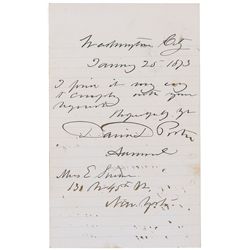 Washington City
January 25 1873
I give it my
to comply with your
request
Respectfully Yr
David Porter
Admiral
Miss E
130 W 45th St
New York